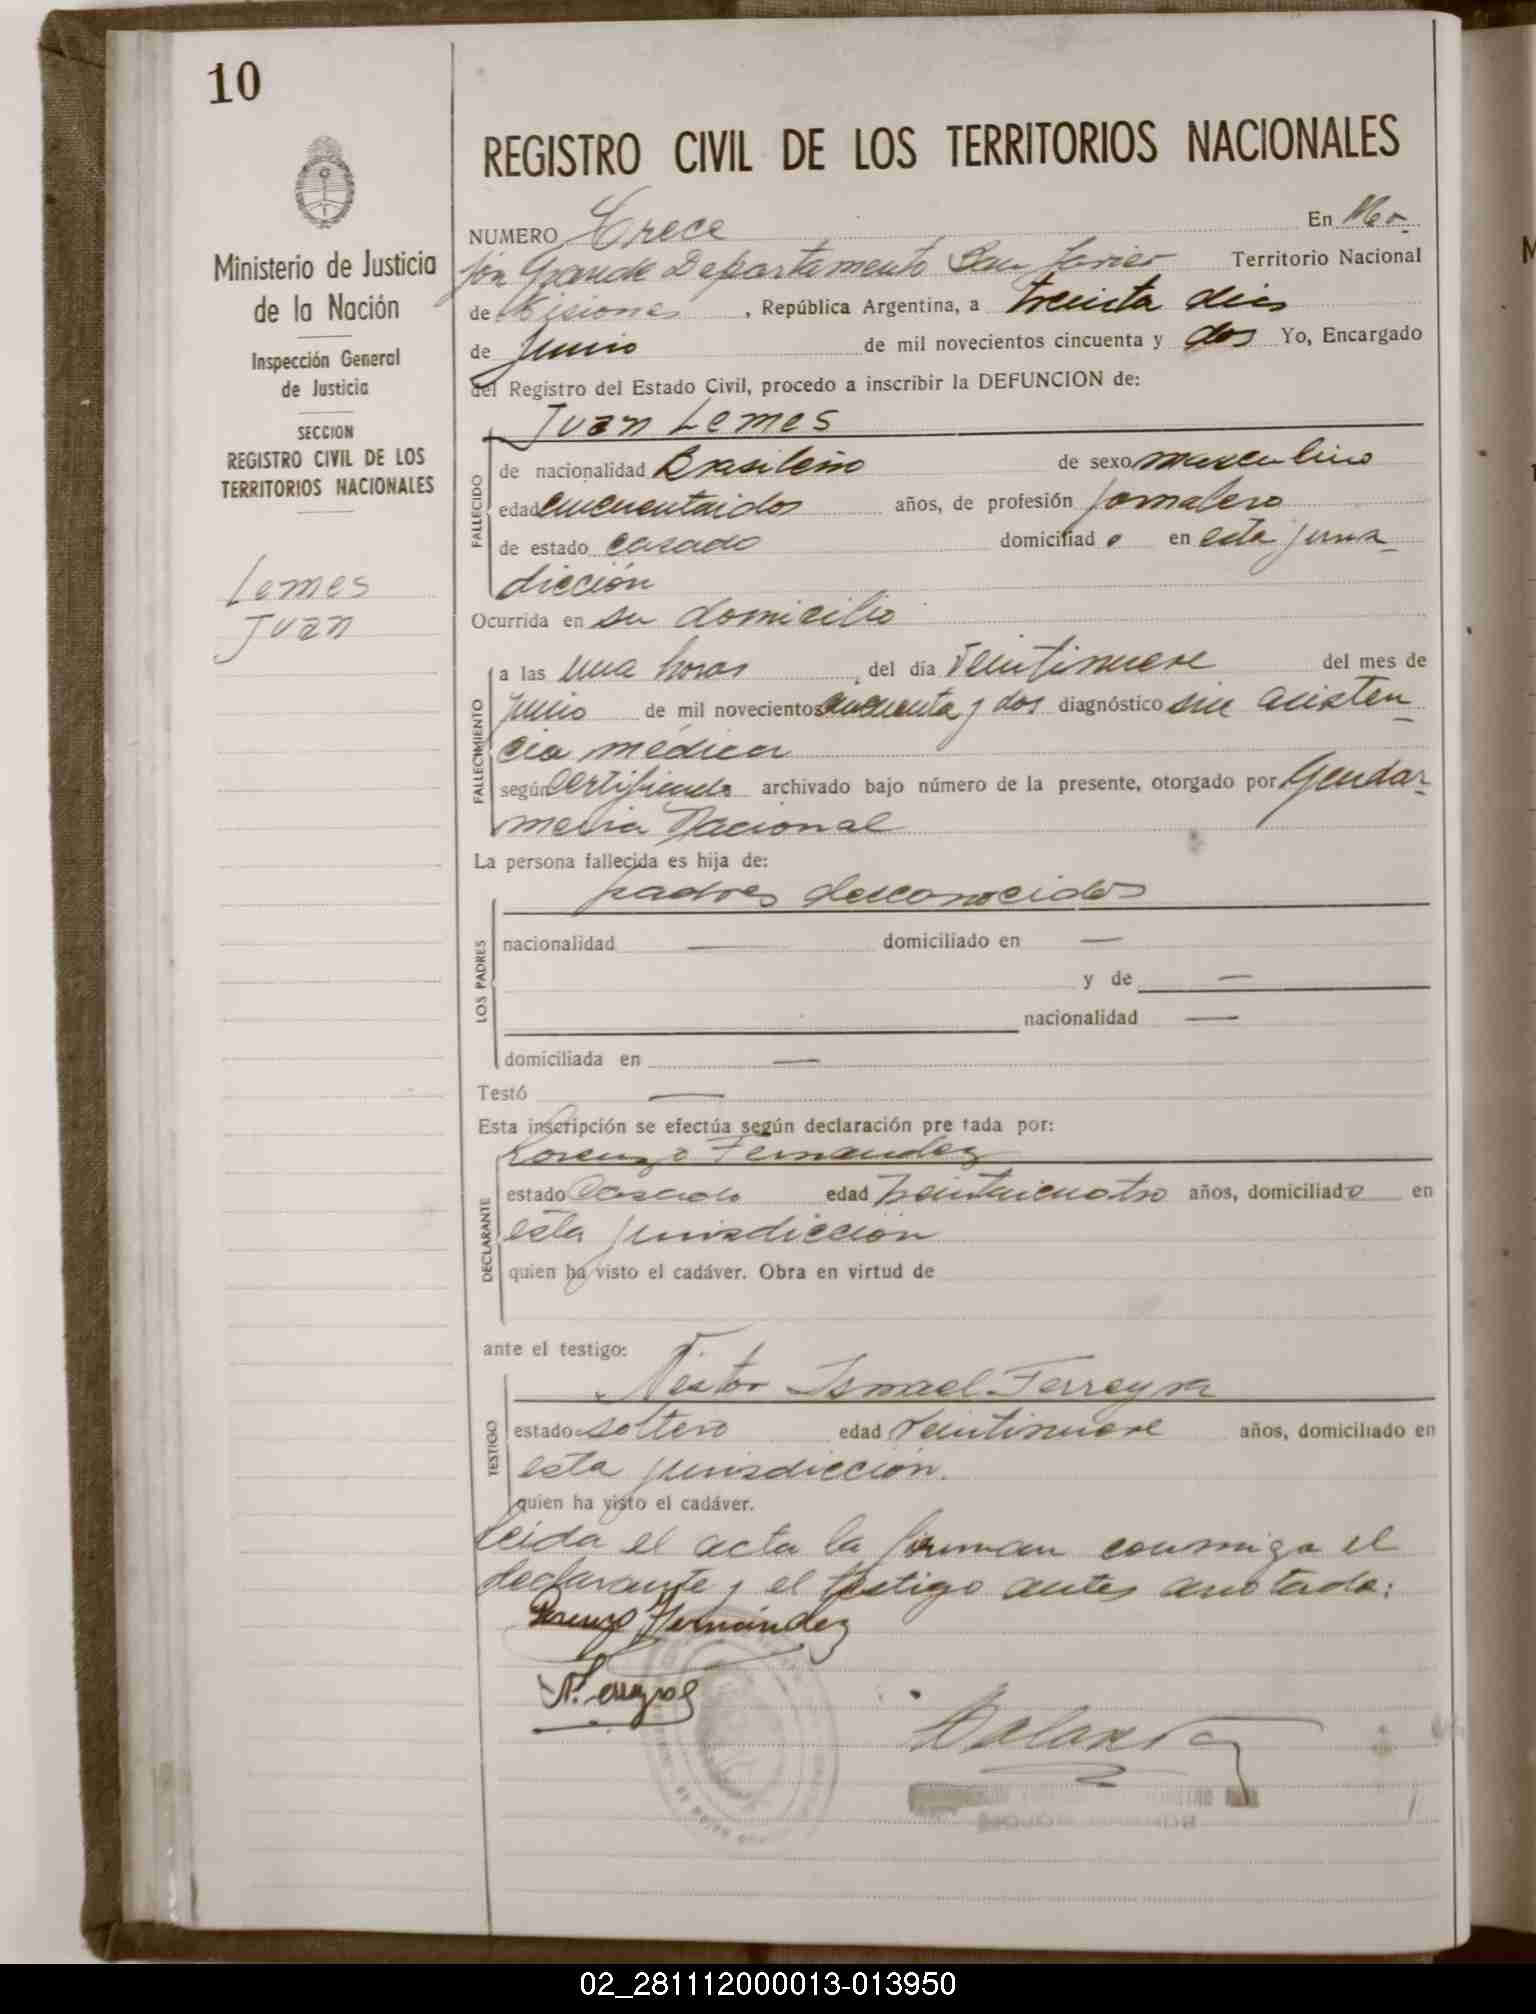 10
REGISTRO CIVIL DE LOS TERRITORIOS NACIONALES
Ministerio de Justicia
de la Nación
Inspección General
de Justicia
SECCION
REGISTRO CIVIL DE LOS
TERRITORIOS NACIONALES
Lemes
Juan
NUMERO Trece En Mo-
jón Grande Departamento San Javier Territorio Nacional
de Misiones, República Argentina, a treinta dias
de Junio de mil novecientos cincuenta y dos Yo, Encargado
del Registro del Estado Civil, procedo a inscribir la DEFUNCION de:
Juan Lemes
FALLECIDO
de nacionalidad Brasileño de sexo masculino
edad cincuentaidos años, de profesión jornalero
de estado casado domiciliado en esta juris-
dicción
Ocurrida en su domicilio
FALLECIMIENTO
a las una horas, del día veintinueve del mes de
junio de mil novecientos cincuenta y dos diagnóstico sin asisten-
cia médica
según certificado archivado bajo número de la presente, otorgado por Gendar-
meria Nacional
La persona fallecida es hija de:
padres desconocidos
LOS PADRES
nacionalidad — domiciliado en —
y de —
nacionalidad —
domiciliada en —
Testó —
Esta inscripción se efectúa según declaración pre tada por:
Lorenzo Fernandez
DECLARANTE
estado Casado edad treintaicuatro años, domiciliado en
esta jurisdicción
quien ha visto el cadáver. Obra en virtud de
ante el testigo:
Néstor Ismael Ferreyra
TESTIGO
estado soltero edad veintinueve años, domiciliado en
esta jurisdicción.
quien ha visto el cadáver.
Leida el acta la firman conmigo el
declarante y el testigo antes anotado:
Lorenzo Fernández
02_281112000013-013950